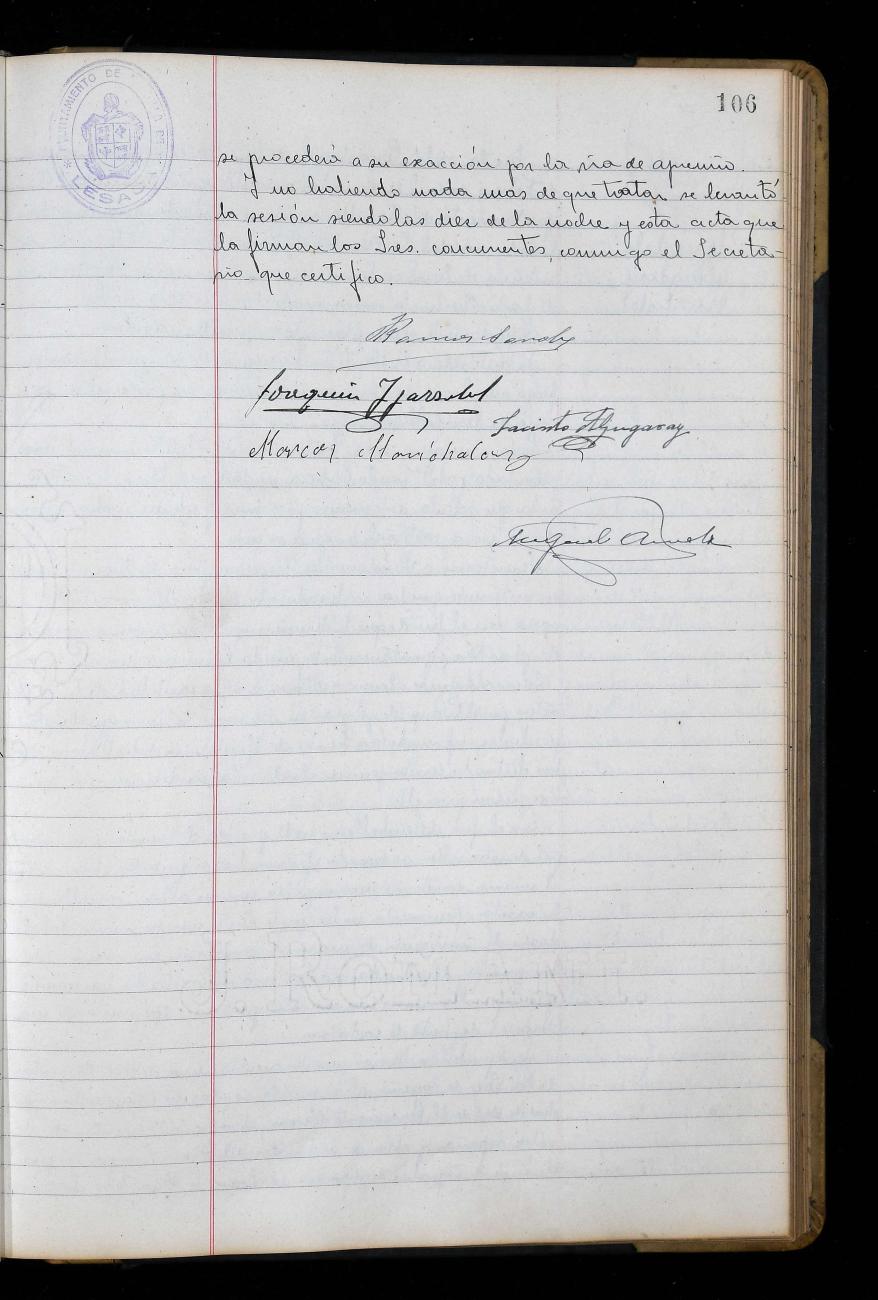 106
AYUNTAMIENTO DE
LESACA
se procederá a su exacción por la vía de apremio.
Y no habiendo nada más de que tratar se levantó
la sesión siendo las diez de la noche y esta acta que
la firman los Sres. concurrentes, conmigo el Secreta-
rio que certifico.
Ramos
Joaquin
Jacinto
Marcos Marichalar
Miguel